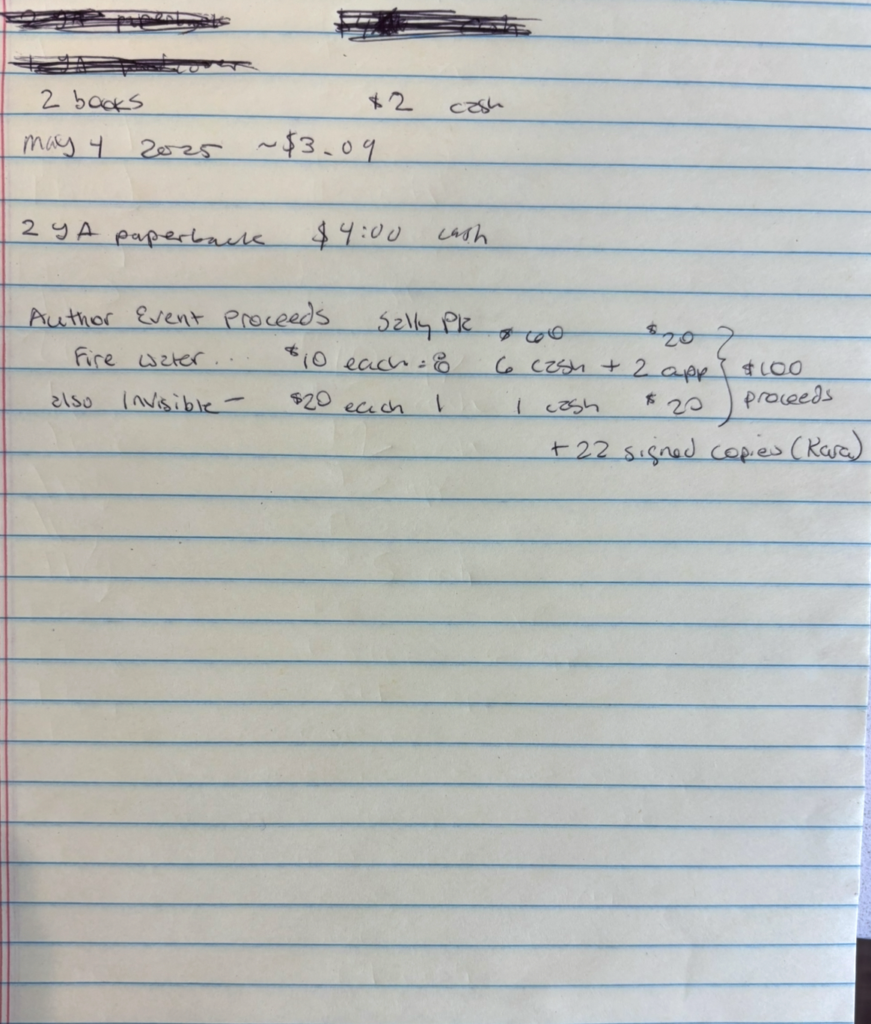 2 YA paperback
2 books $2 cash
May 4 2025 ~$3.09
2 YA paperback $4:00 cash
Author Event Proceeds Sally PK $60 $20
Fire Water... $10 each = 8 6 cash + 2 app } $100
also Invisible - $20 each 1 1 cash $20 proceeds
+ 22 signed copies (Kara)